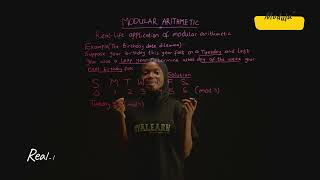 Modular
MODULAR ARITHMETIC
Real-life application of modular arithmetic
Example (The Birthday date dilemma)
Suppose your birthday this year falls on a Tuesday and last
year was a leap year, determine what day of the week your
last birthday fell
Solution
S M T W F S
0 1 2 3 5 6 (mod 7)
Tuesday mod 7)
Real-